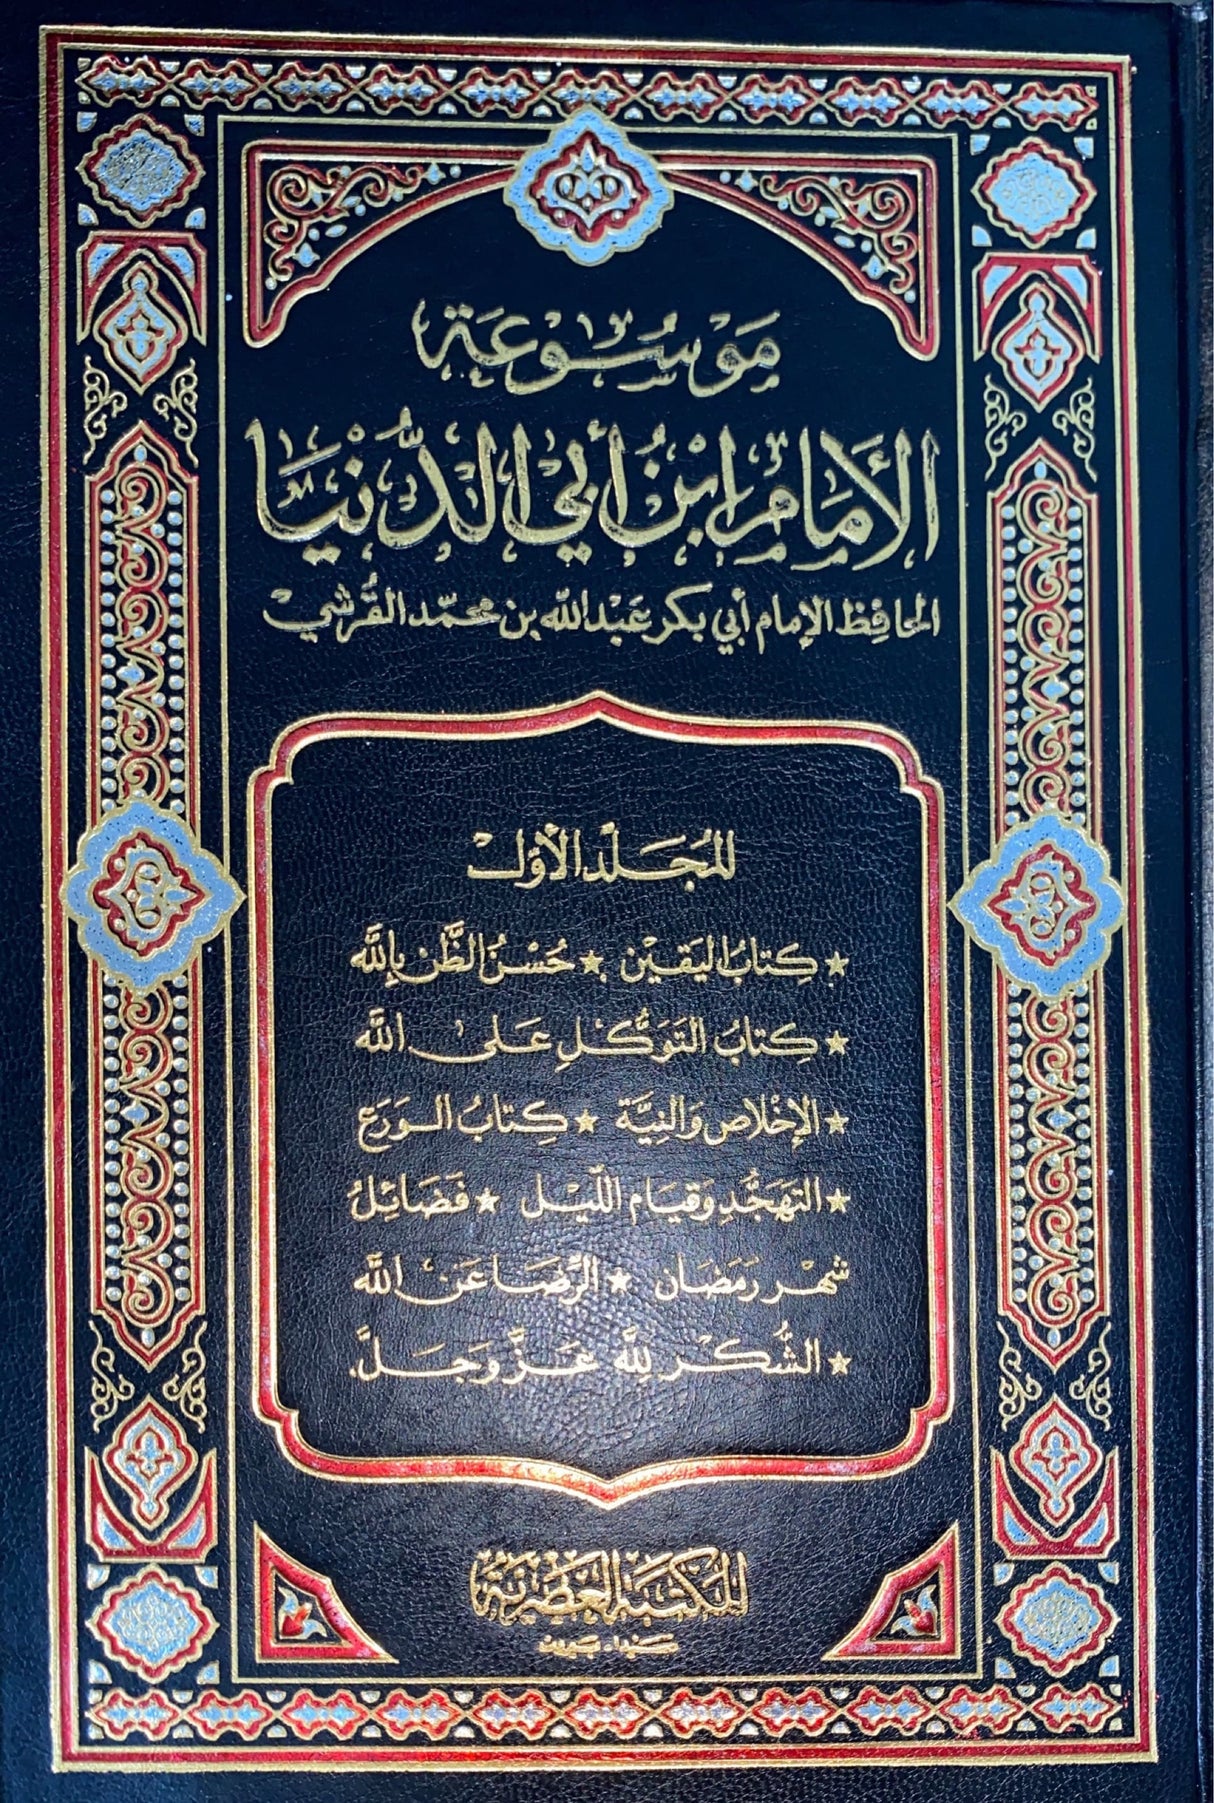 مَوْسُوعَة
الإمَام ابْن أبي الدُّنْيَا
الحَافِظ الإمام أبي بكر عَبْد الله بن محمّد القُرشي
المُجَلّد الأوّل
★ كِتابُ اليَقِيْن ★ حُسْنُ الظَّن بِاللَّه
★ كِتابُ التَوَكُّلِ عَلى الله
★ الإخْلاص وَالنِيَّة ★ كِتابُ الوَرَع
★ التهَجُّدِ وَقيَام اللّيْل ★ فَضَائِلُ
شهْر رَمَضَان ★ الرِّضَا عَن الله
★ الشُّكْر لِلَّه عَزَّ وَجَلَّ.
المكتبة العصرية
صَيدا - بَيروت